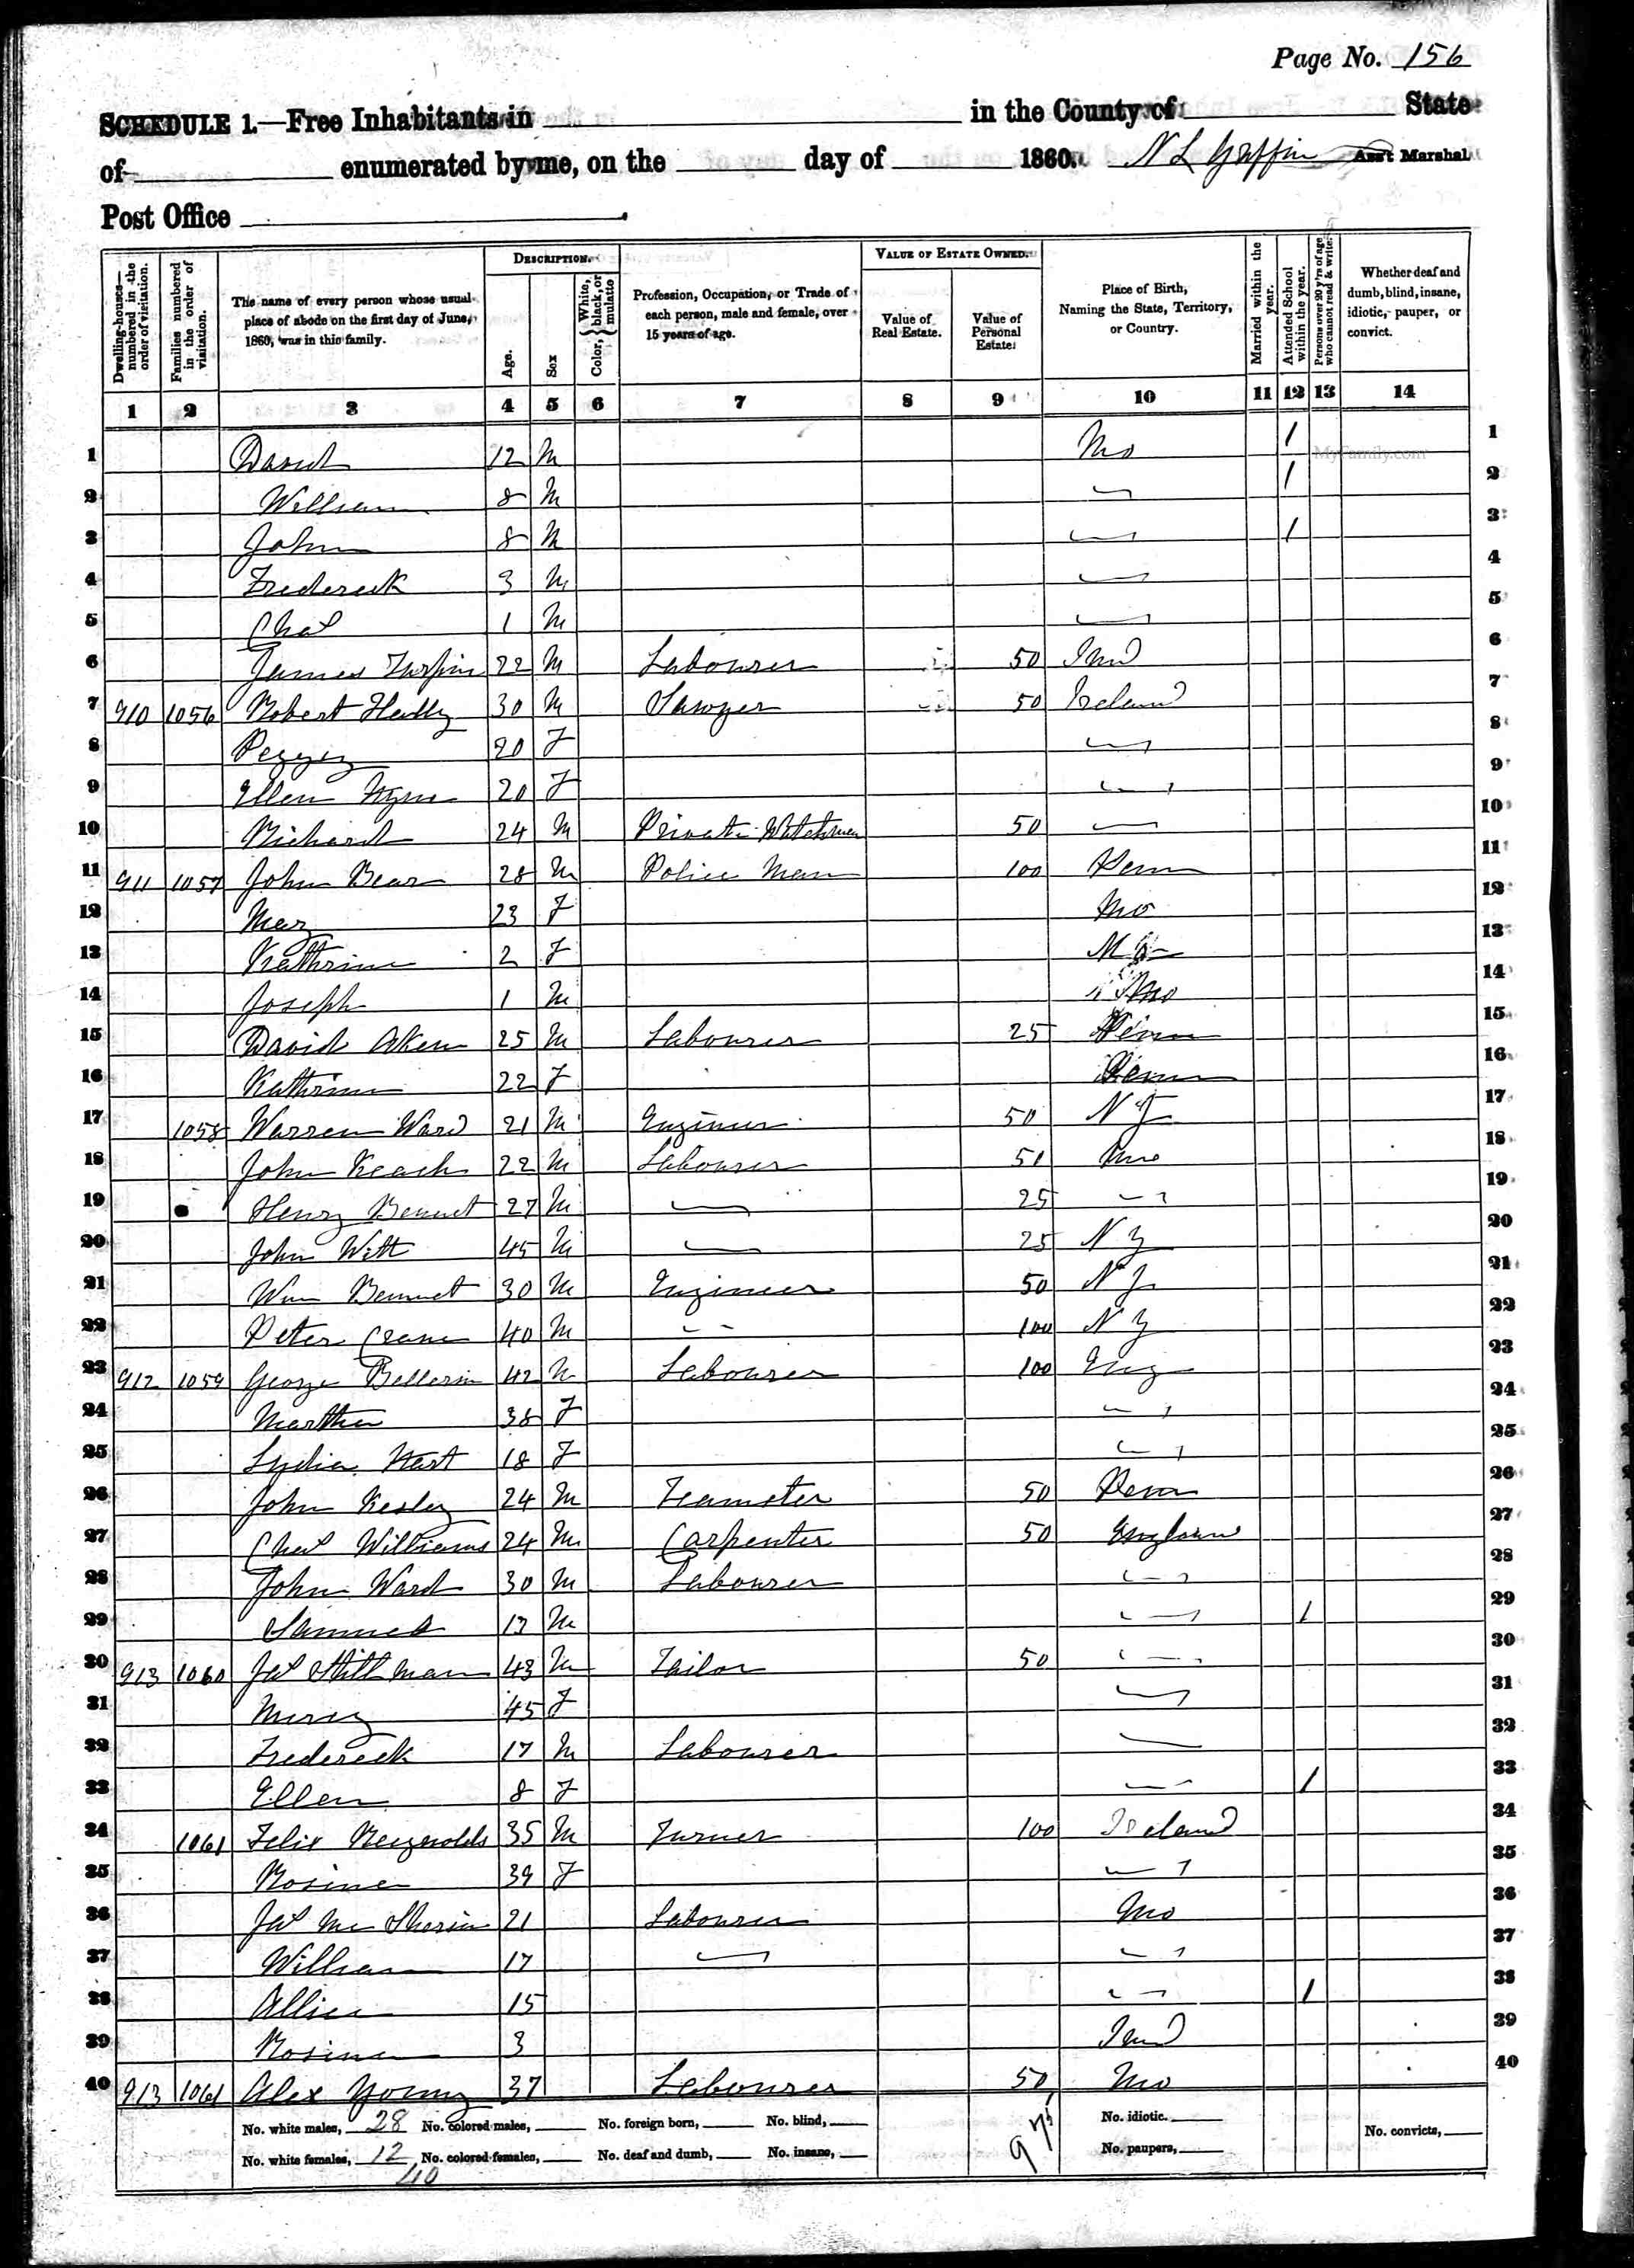 Page No. 156
SCHEDULE 1.—Free Inhabitants in in the County of State
of enumerated by me, on the day of 1860. N L Griffin Ass't Marshal
Post Office
Dwelling-houses—numbered in the order of visitation.
Families numbered in the order of visitation.
The name of every person whose usual place of abode on the first day of June, 1860, was in this family.
DESCRIPTION.
Age.
Sex
Color, { White, black, or mulatto
Profession, Occupation, or Trade of each person, male and female, over 15 years of age.
VALUE OF ESTATE OWNED.
Value of Real Estate.
Value of Personal Estate.
Place of Birth, Naming the State, Territory, or Country.
Married within the year.
Attended School within the year.
Persons over 20 y'rs of age who cannot read & write.
Whether deaf and dumb, blind, insane, idiotic, pauper, or convict.
1 2 3 4 5 6 7 8 9 10 11 12 13 14
1 David 12 M Mo 1 MyFamily.com 1
2 William 8 M 1 2
3 John 8 M 1 3
4 Frederick 3 M 4
5 Chas 1 M 5
6 James Turpin 22 M Labourer 50 Ind 6
7 910 1056 Robert 30 M Sawyer 50 Ireland 7
8 Peggy 20 F 8
9 Ellen 20 F 9
10 Richard 24 M Private Watchman 50 10
11 911 1057 John Bear 28 M Police Man 100 Penn 11
12 Mary 23 F Mo 12
13 Kathrine 2 F Mo 13
14 Joseph 1 M Mo 14
15 David Aken 25 M Labourer 25 Penn 15
16 Kathrine 22 F Penn 16
17 1058 Warren Ward 21 M Engineer 50 N J 17
18 John Keach 22 M Labourer 50 Mo 18
19 Henry Bennet 27 M 25 19
20 John Witt 45 M 25 N Y 20
21 Wm Bennet 30 M Engineer 50 N J 21
22 Peter Crane 40 M 100 N Y 22
23 912 1059 George 42 M Labourer 100 Eng 23
24 Martha 38 F 24
25 Lydia 18 F 25
26 John Kesley 24 M Teamster 50 Penn 26
27 Chas Williams 24 M Carpenter 50 England 27
28 John Ward 30 M Labourer 28
29 Samuel 13 M 1 29
30 913 1060 Jas Stillman 43 M Tailor 50 30
31 Mercy 45 F 31
32 Frederick 17 M Labourer 32
33 Ellen 8 F 1 33
34 1061 Felix Reynolds 35 M Turner 100 Ireland 34
35 Rosina 39 F 35
36 Jas Mc 21 Labourer Mo 36
37 William 17 37
38 Allice 15 1 38
39 Rosina 3 Ind 39
40 913 1061 Alex Young 37 Labourer 50 Mo 40
No. white males, 28 No. colored males, No. foreign born, No. blind, 975 No. idiotic. No. convicts,
No. white females, 12 No. colored females, No. deaf and dumb, No. insane, No. paupers,
40